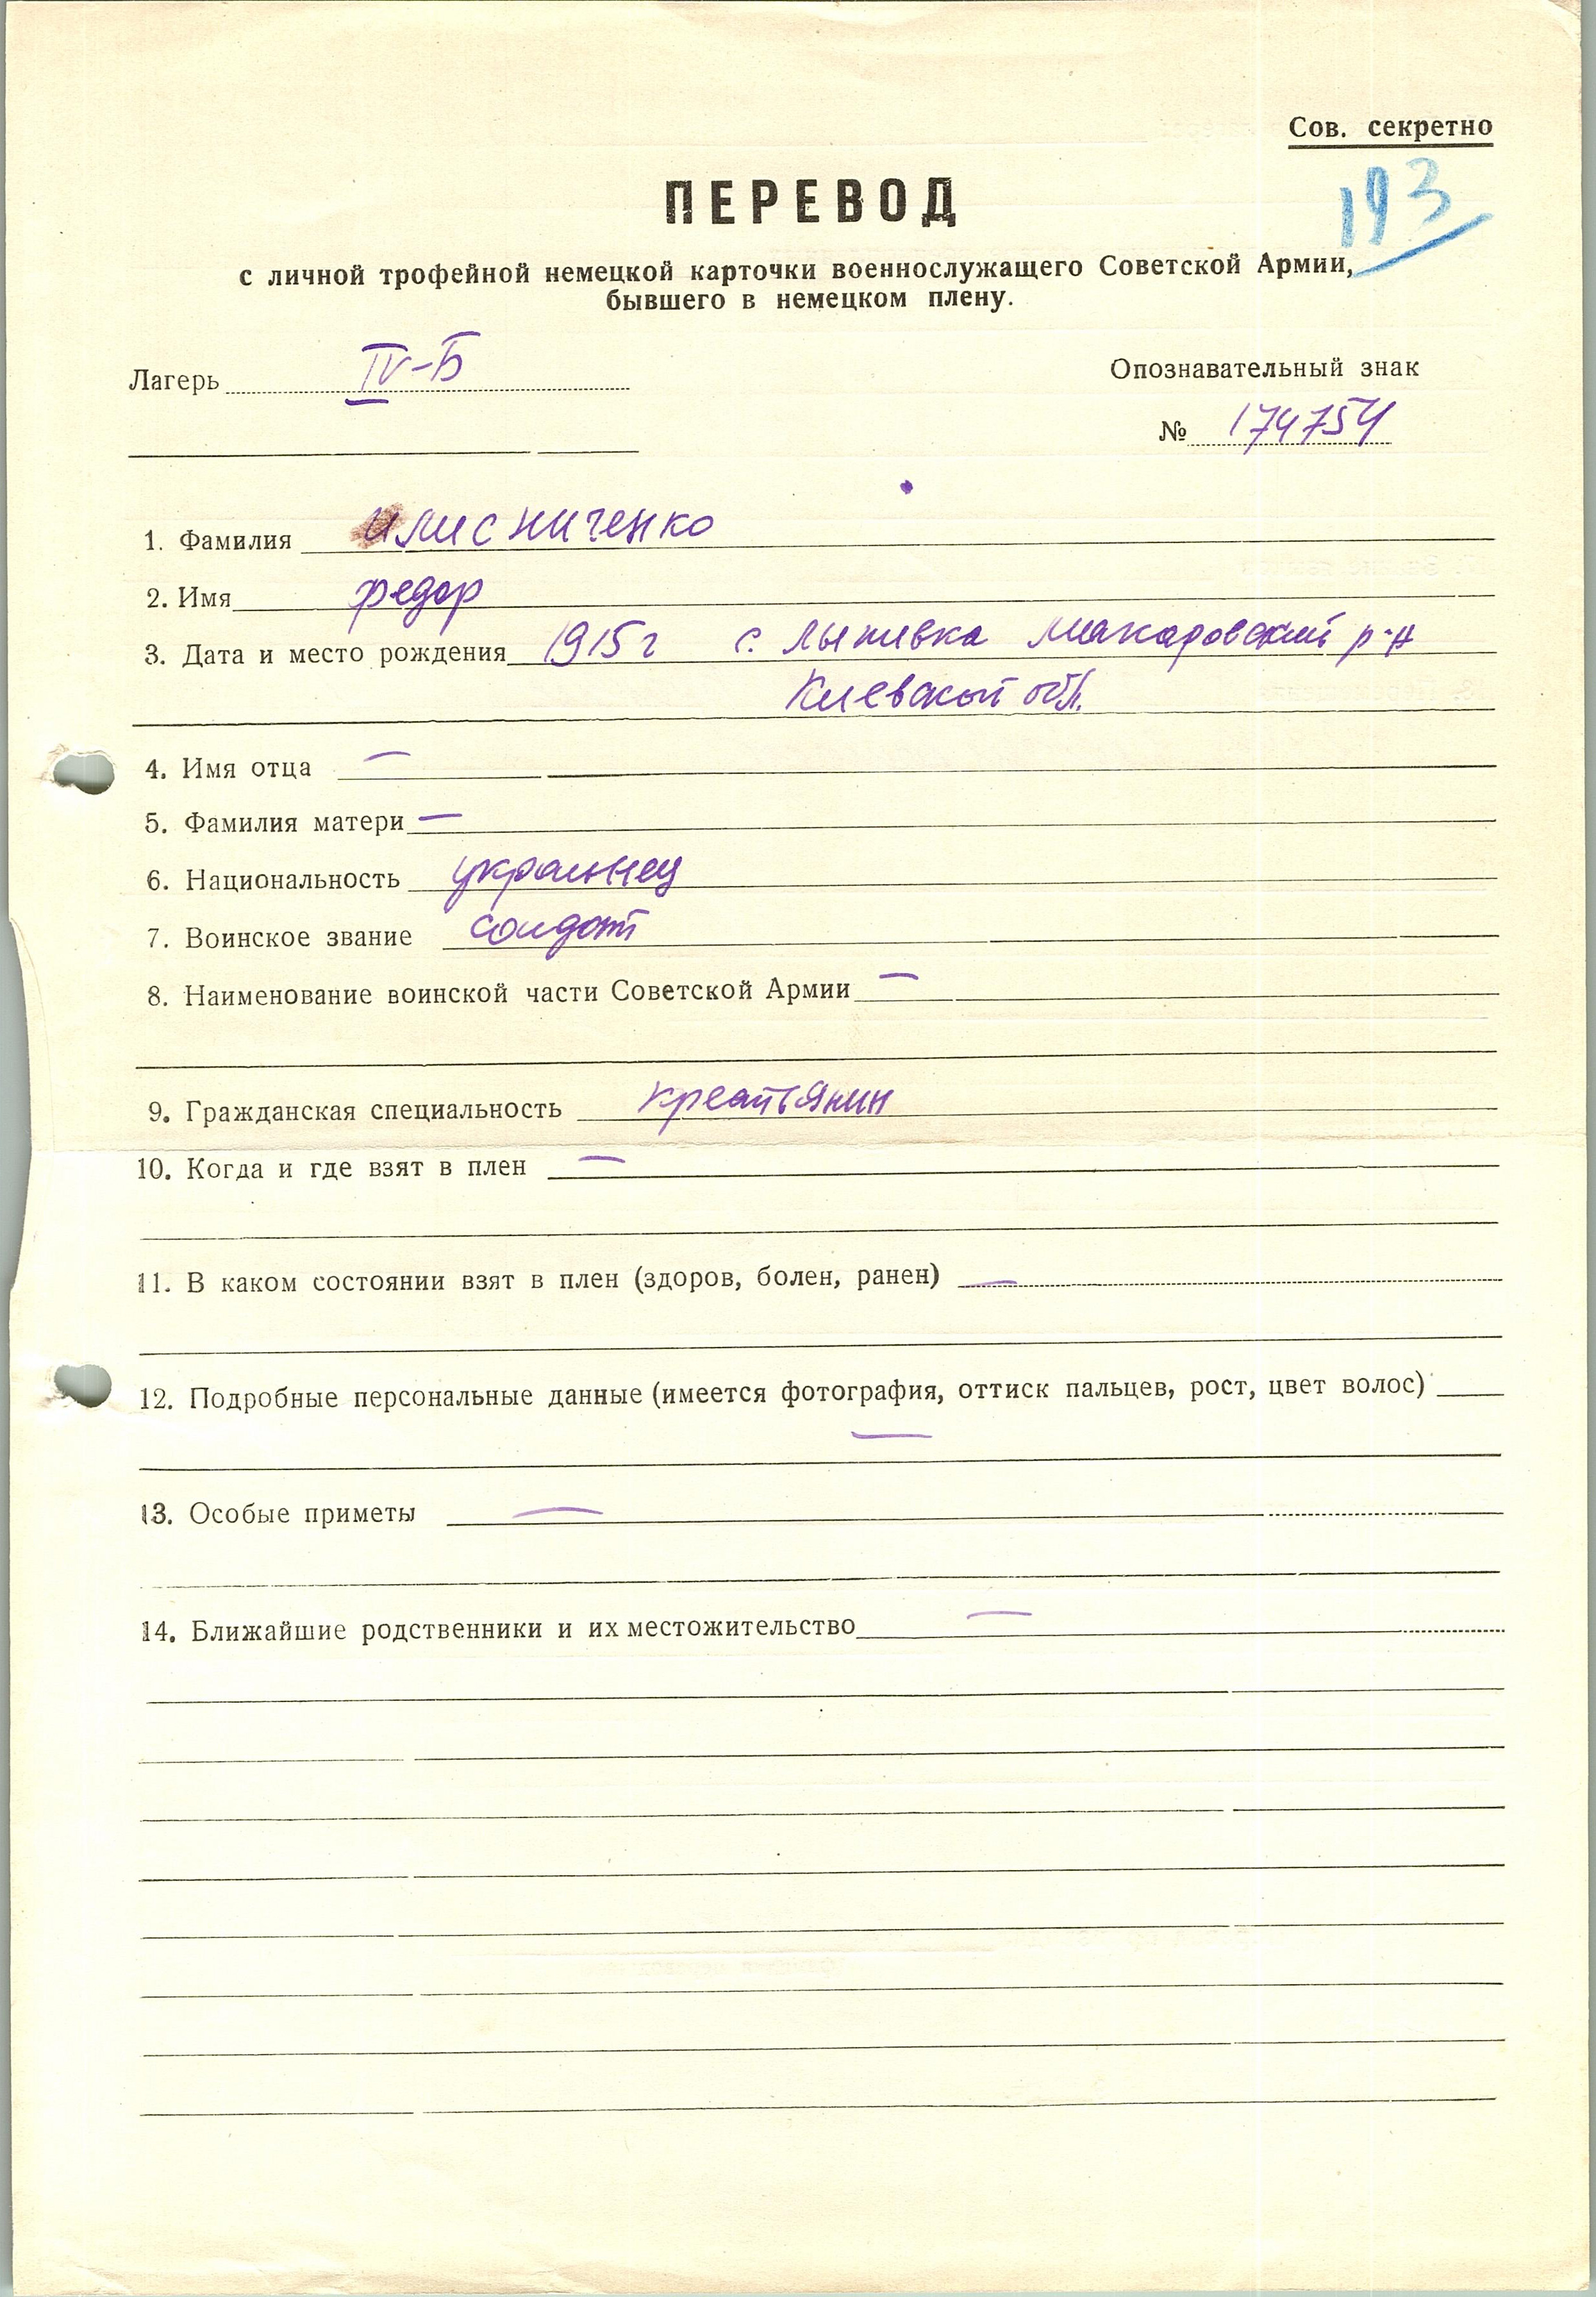 Сов. секретно
193
ПЕРЕВОД
с личной трофейной немецкой карточки военнослужащего Советской Армии,
бывшего в немецком плену.
Лагерь IV-Б
Опознавательный знак
№ 174754
1. Фамилия Илисниченко
2. Имя Федор
3. Дата и место рождения 1915 г с. Лыпивка Макаровский р-н
Киевской обл.
4. Имя отца —
5. Фамилия матери —
6. Национальность украинец
7. Воинское звание солдат
8. Наименование воинской части Советской Армии —
9. Гражданская специальность крестьянин
10. Когда и где взят в плен —
11. В каком состоянии взят в плен (здоров, болен, ранен) —
12. Подробные персональные данные (имеется фотография, оттиск пальцев, рост, цвет волос)
—
13. Особые приметы —
14. Ближайшие родственники и их местожительство —